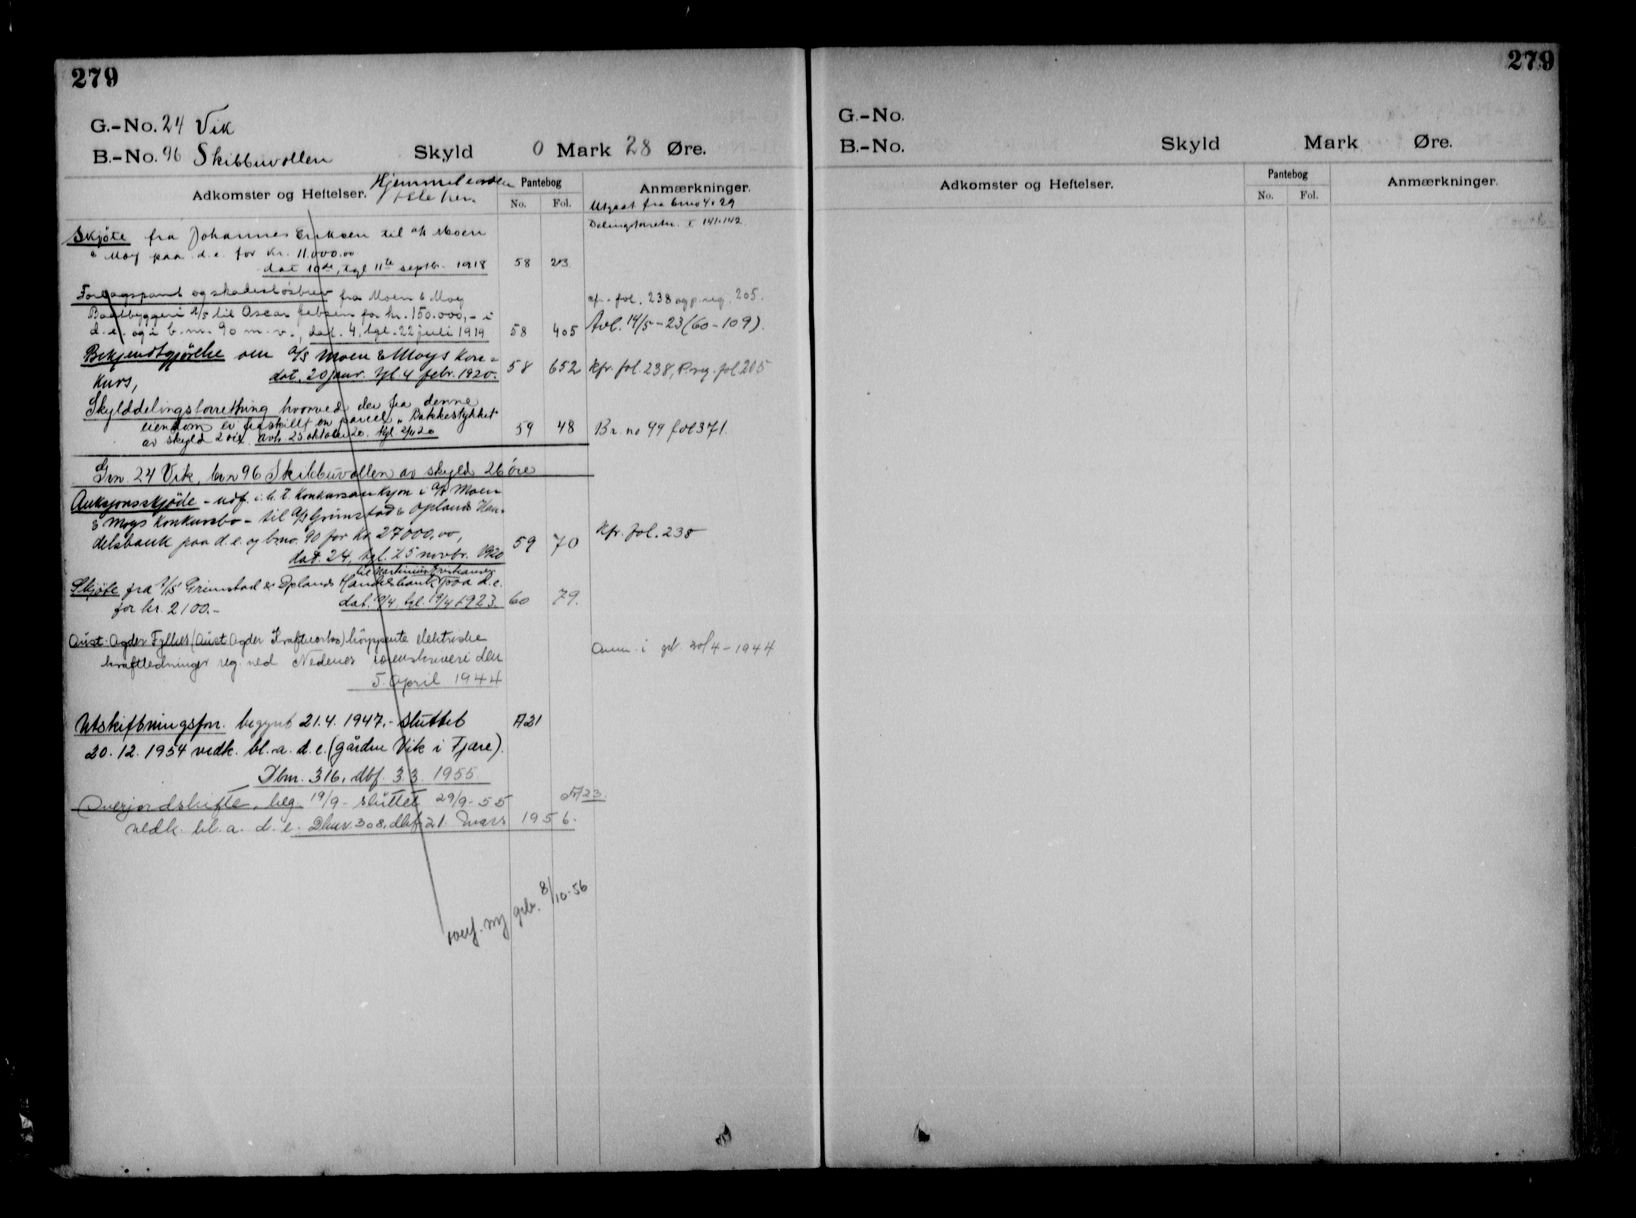 279
G.-No. 24 Vik
B.-No. 96 Skibbuvollen Skyld 0 Mark 28 Øre.
Adkomster og Heftelser. Pantebog Anmærkninger.
No. Fol.
Utgaat fra bno 4 & 29
Skjöte fra Johannes Eriksen til a/s Moen
& Moy paa d.e. for kr. 11.000.00
dat 10de, tgl 11te septb. 1918 58 213
og skadesløsbrev fra Moen & Moy
Baatbyggeri a/s til Oscar Jebsen for kr. 150.000,- i
d.e. og i b.nr. 90 m.v., dat. 4. tgl. 22 juli 1919 58 405
cfr. fol. 238 og p.reg. 205.
Avl. 14/5-23 (60-109).
Bekjendtgjörelse om a/s Moen & Moys kon-
kurs, dat. 20 januar. tgl 4 febr. 1920. 58 652 kfr. fol. 238, P.reg. fol 205
Skylddelingsforretning hvorved der fra denne
eiendom er fraskillt en parcel „Bakkestykket
av skyld 2 öre. avh. 25 oktober 20. tgl. 2/11 20 59 48 Br. no 99 fol 371.
Gno. 24 Vik, bno 96 Skibbuvollen av skyld 26 öre
Auksjonsskjöde - udf. i h.t. konkursauksjon i a/s Moen
& Moys konkursbo - til a/s Grimstad & Oplands Han-
delsbank paa d.e. og bno. 90 for kr. 27000.00,
dat. 24, tgl. 25 novbr. 1920 59 70 kfr. fol. 238
Skjöte fra a/s Grimstad & Oplands Handelsbank paa d.e.
for kr. 2100.- dat. 10/4, tgl. 19/4 1923. 60 79.
Aust-Agder Fylkes (Aust Agder Kraftverks) elektriske
kraftledninger reg. ved Nedenes sorenskriveri den
5 April 1944
Anm. i gb. 20/4-1944
Utskiftningsforr. begynt 21.4. 1947,- sluttet A21
20. 12. 1954 vedk. bl. a. d. e. (gården Vik i Fjære).
Dbnr. 316, dbf. 3.3. 1955
Overjordskifte, beg. 19/9- sluttet 29/9-55 A23.
vedk. bl. a. d. e. Dbnr. 308, dbf 21. mars 1956.
overf. ny grb. 8/10-56
279
G.-No.
B.-No. Skyld Mark Øre.
Adkomster og Heftelser. Pantebog Anmærkninger.
No. Fol.